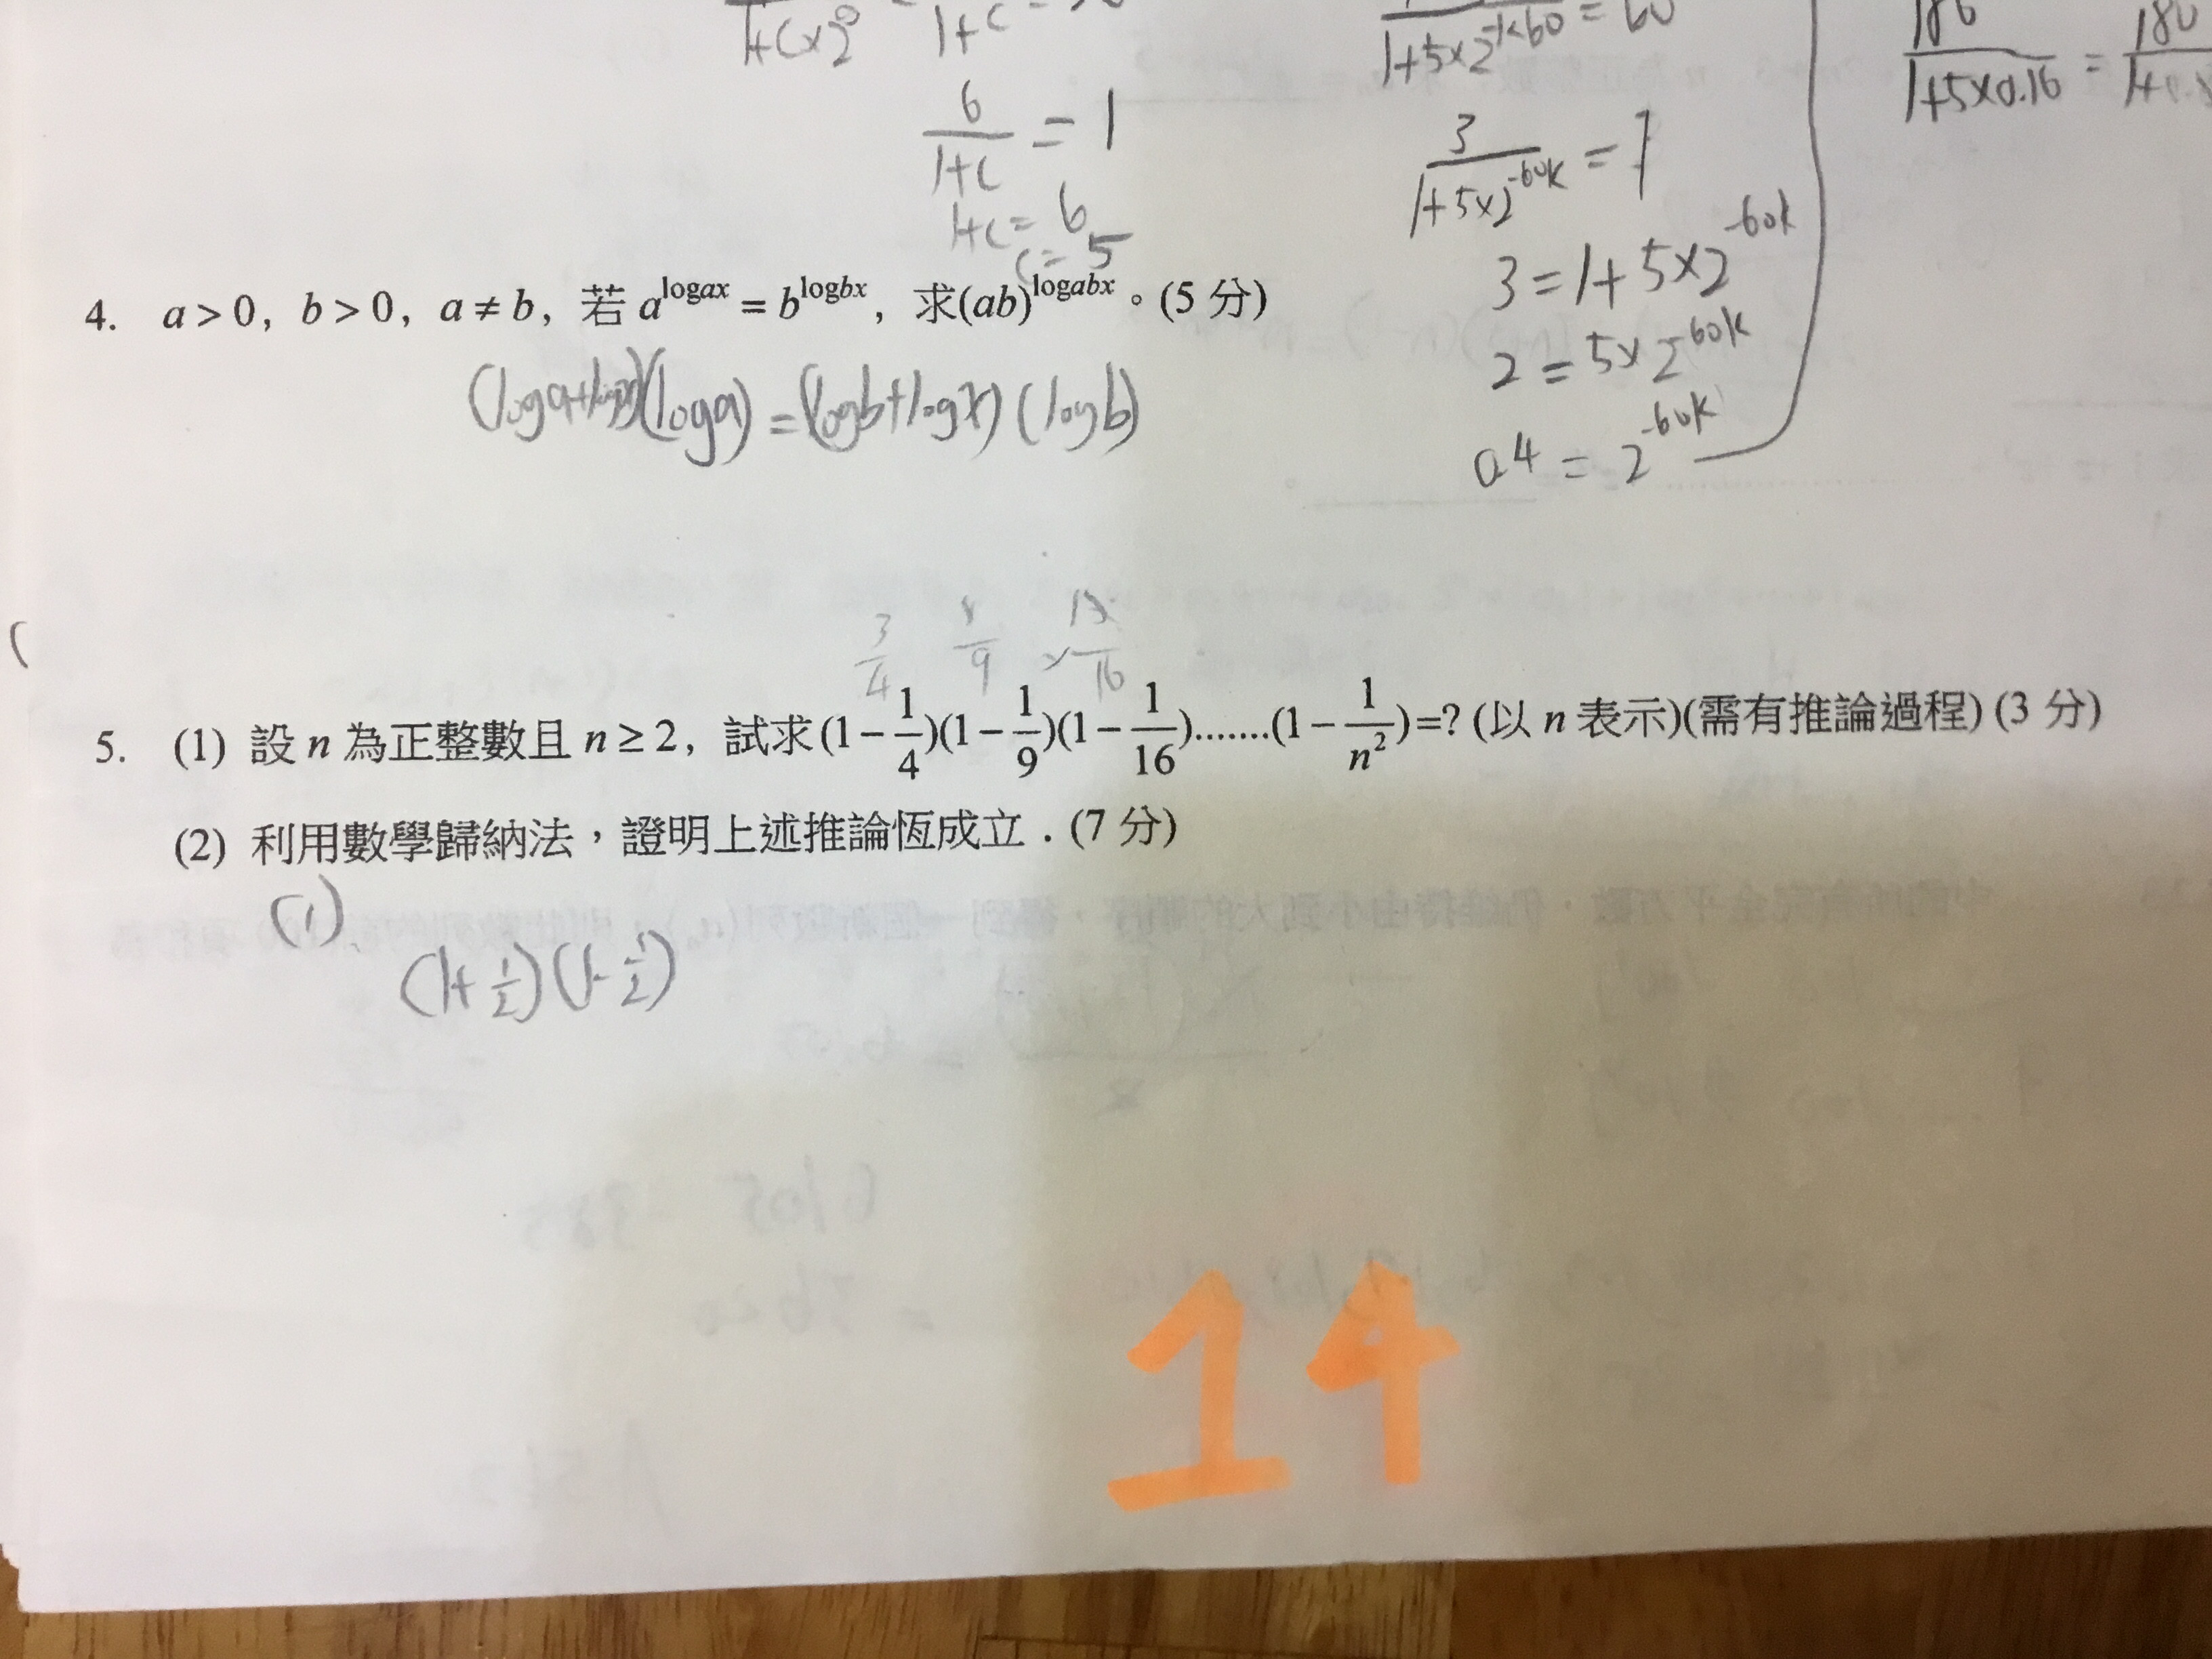 6/(1+c) = 1
1+c = 6
c = 5
3/(1+5×2^-60k) = 1
3 = 1+5×2^-60k
2 = 5×2^-60k
0.4 = 2^-60k
180/(1+5×0.16) =
4. a > 0, b > 0, a ≠ b, 若 a^logax = b^logbx, 求(ab)^logabx。(5 分)
(loga) = (logb+logx)(logb)
3/4 8/9 × 15/16
5. (1) 設 n 為正整數且 n ≥ 2, 試求(1−1/4)(1−1/9)(1−1/16).......(1−1/n²)=? (以 n 表示)(需有推論過程) (3 分)
(2) 利用數學歸納法，證明上述推論恆成立．(7 分)
(1)
(1+1/2)(1-1/2)
14